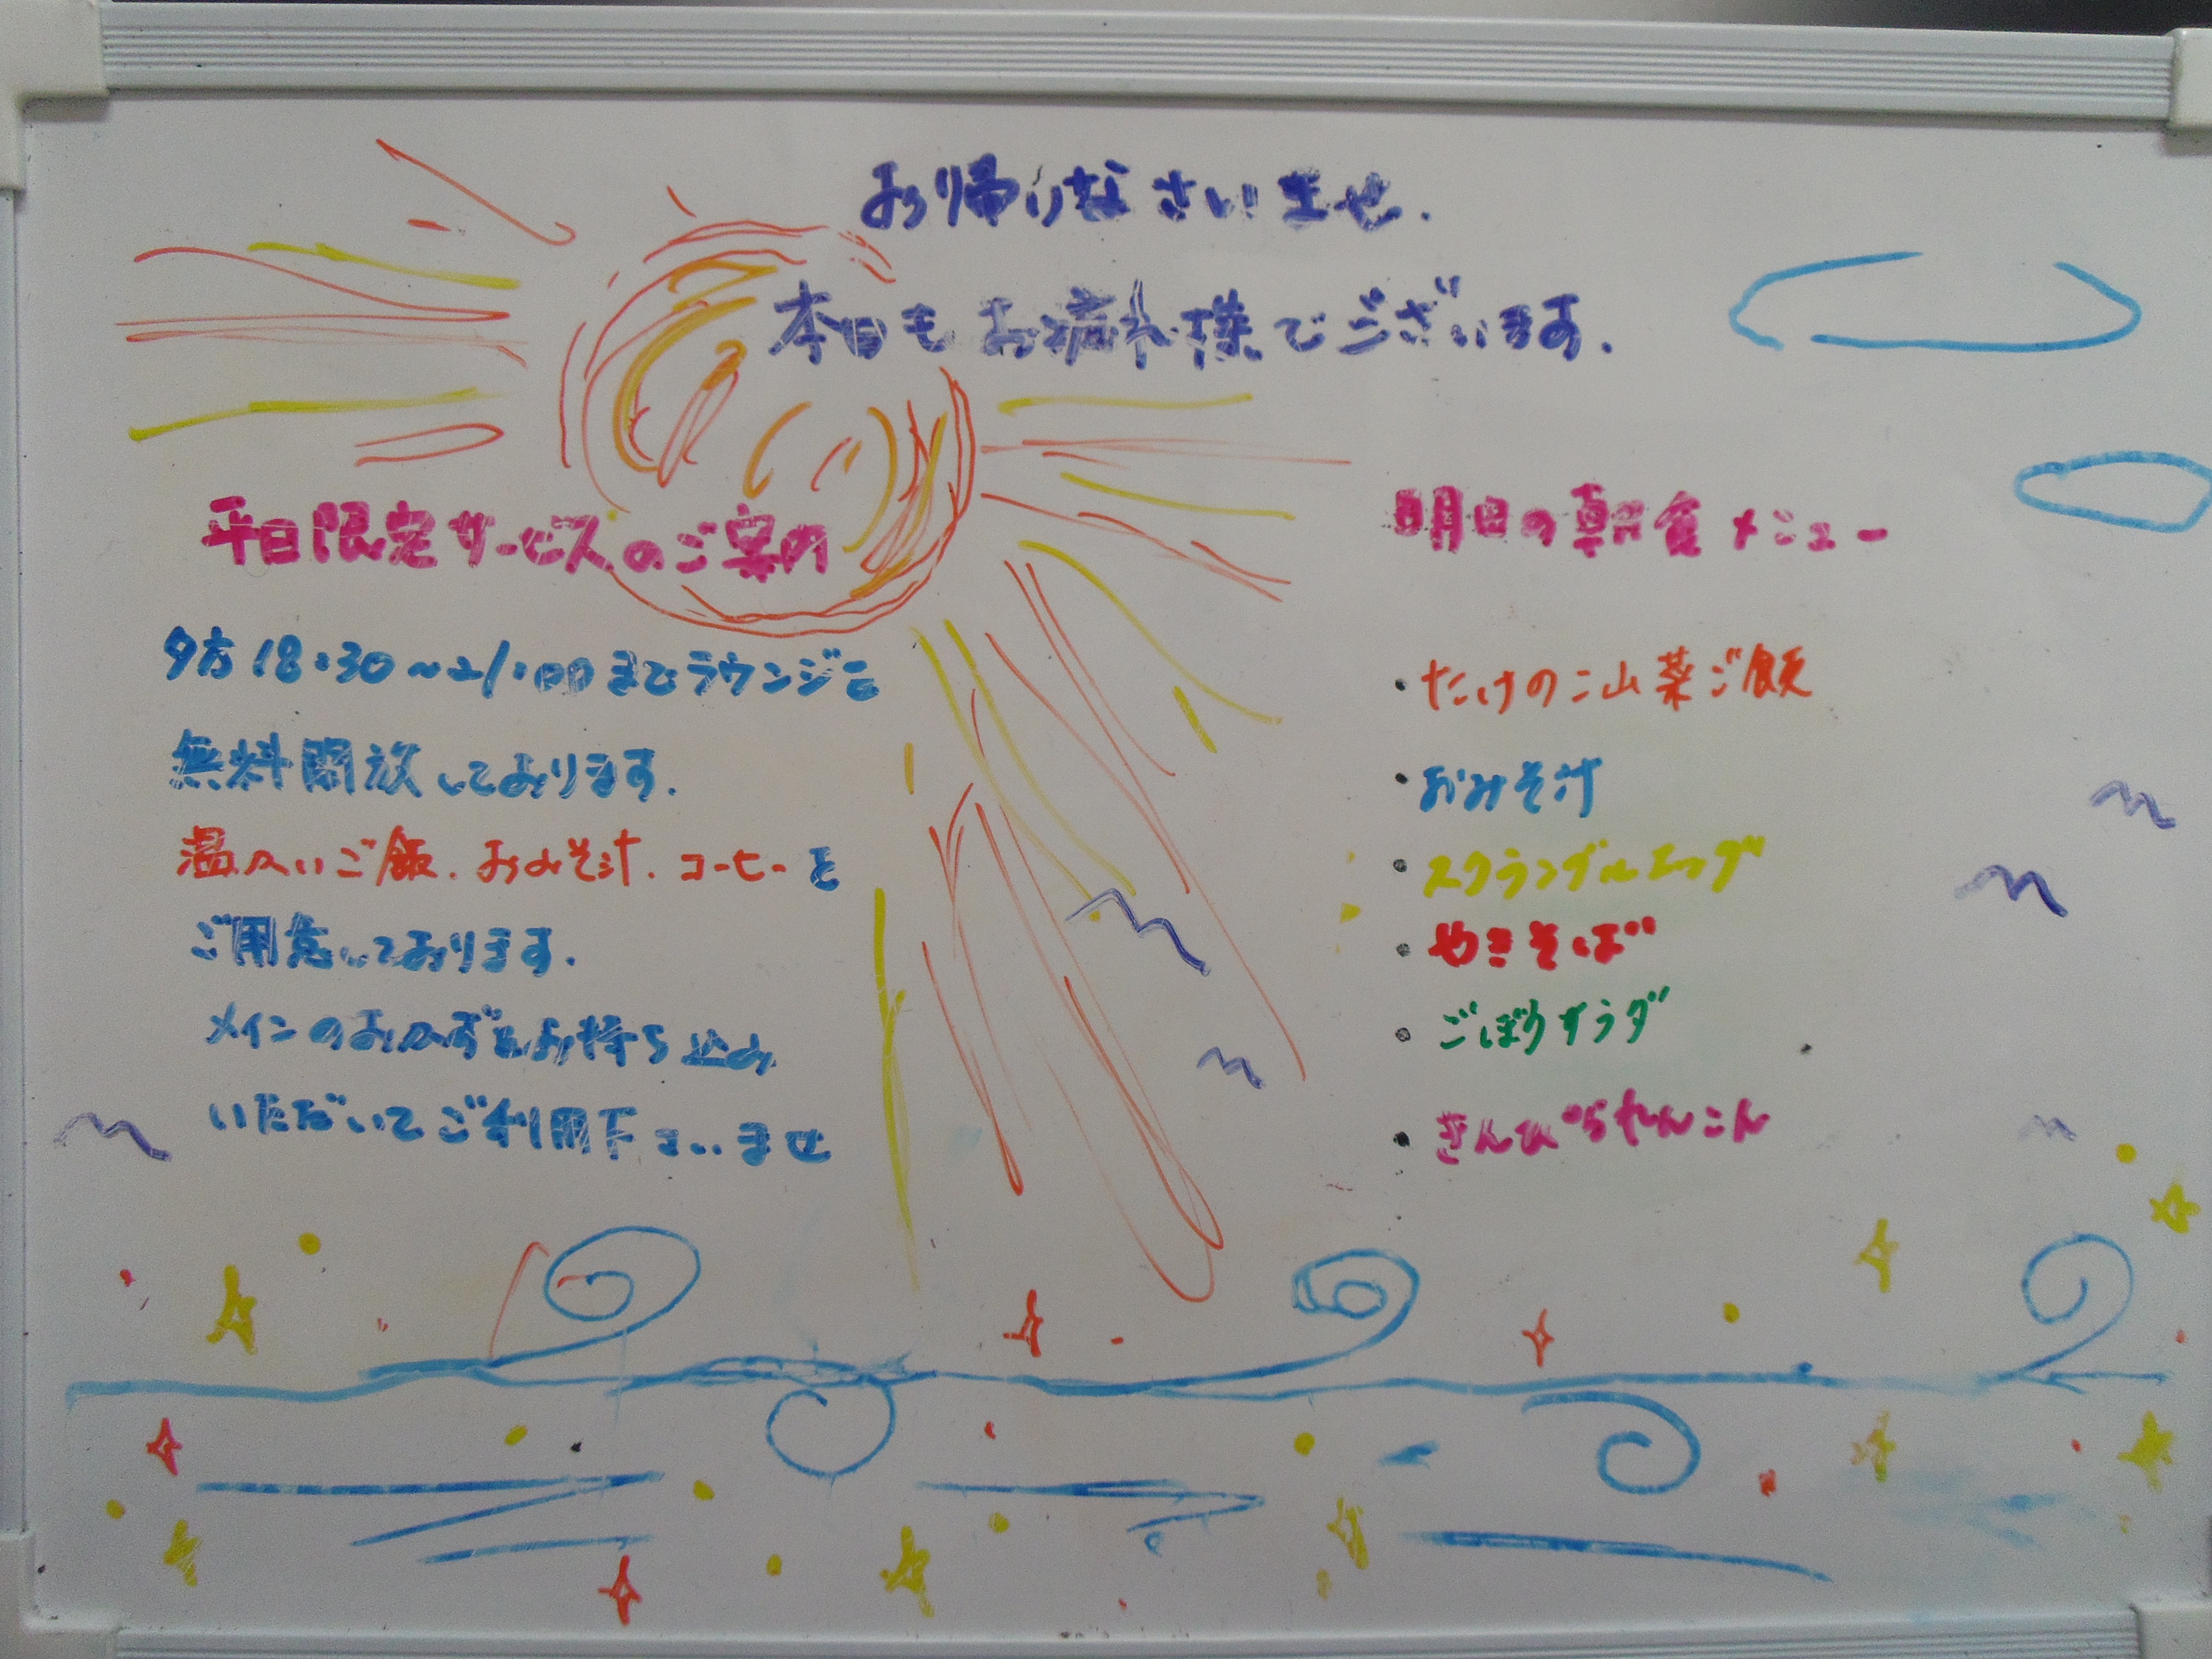 お帰りなさいませ.
本日もお疲れ様でございます.
平日限定サービスのご案内
夕方18:30~21:00までラウンジを
無料開放しております.
温かいご飯.おみそ汁.コーヒーを
ご用意しております.
メインのおかずをお持ち込み
いただいてご利用下さいませ
明日の朝食メニュー
・たけのこ山菜ご飯
・おみそ汁
・スクランブルエッグ
・やきそば
・ごぼうサラダ
・きんぴられんこん